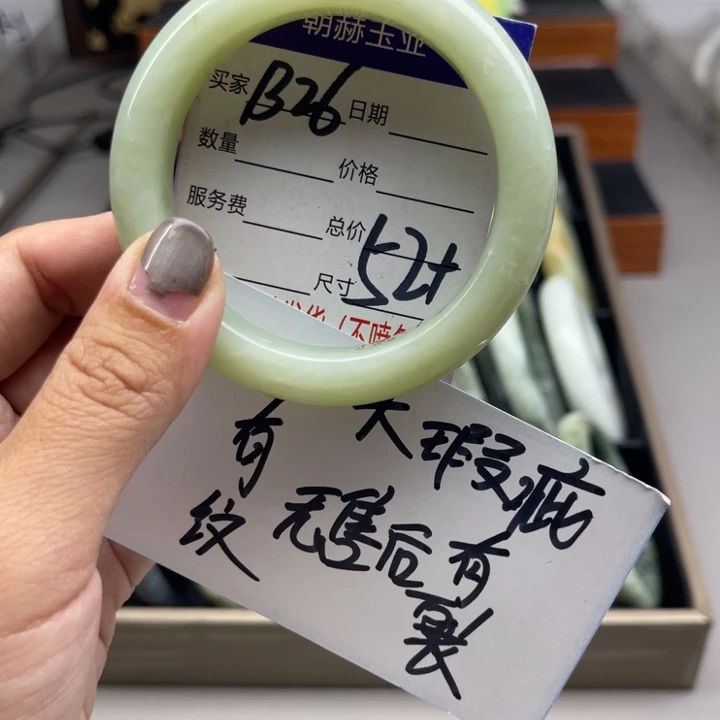 朝赫玉业
买家 B26 日期
数量 价格
服务费 总价
尺寸 524
(不喷
有 大瑕疵
纹 无售后有
裂